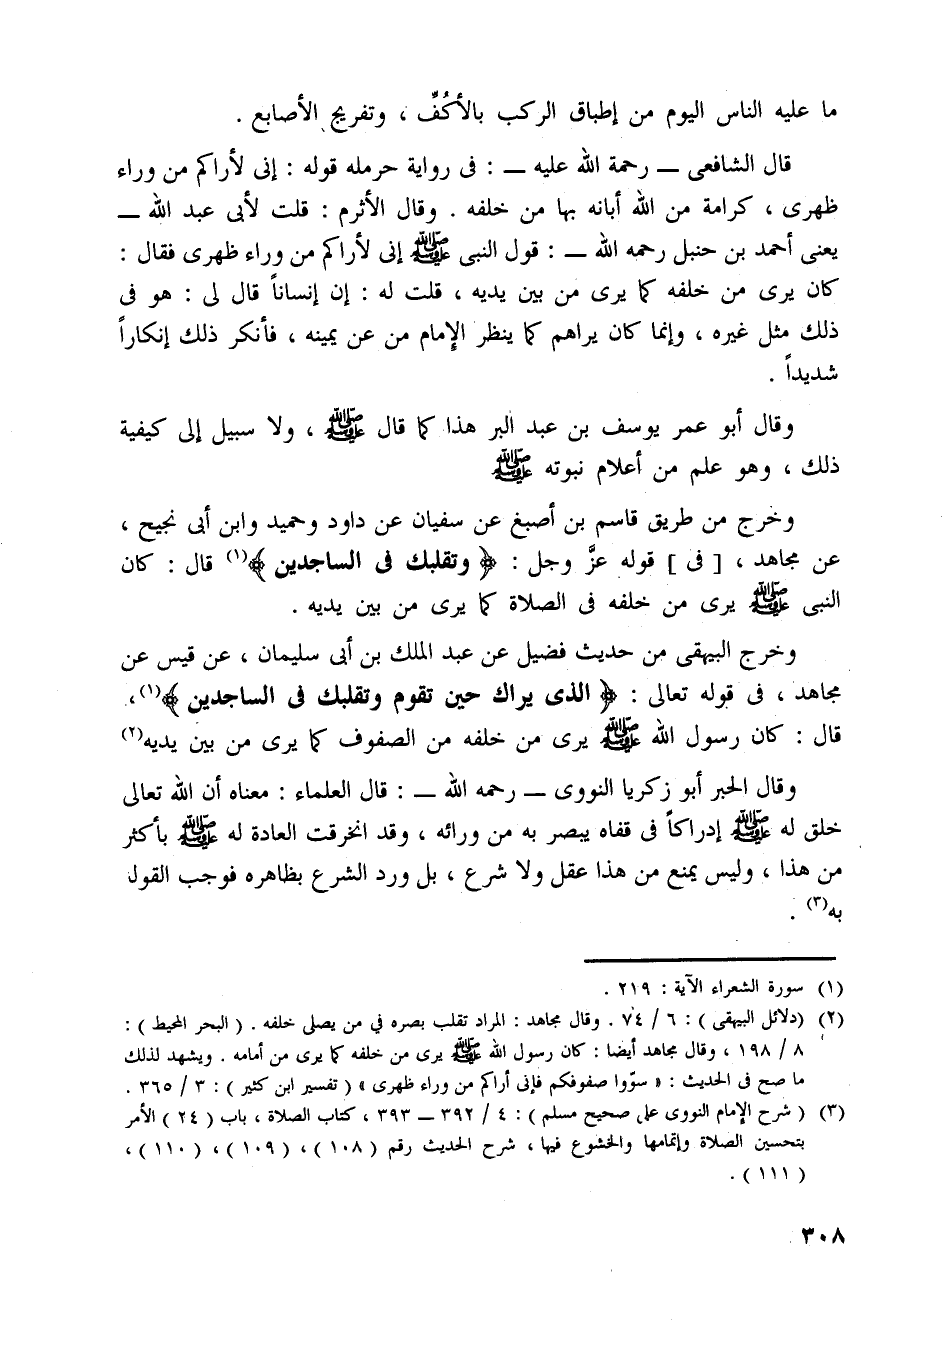 ما عليه الناس اليوم من إطباق الركب بالأكُفِّ ، وتفريج الأصابع .
قال الشافعى ــ رحمة الله عليه ــ : فى رواية حرمله قوله : إنى لأراكم من وراء
ظهرى ، كرامة من الله أبانه بها من خلفه . وقال الأثرم : قلت لأبى عبد الله ــ
يعنى أحمد بن حنبل رحمه الله ــ : قول النبى ﷺ إنى لأراكم من وراء ظهرى فقال :
كان يرى من خلفه كما يرى من بين يديه ، قلت له : إن إنساناً قال لى : هو فى
ذلك مثل غيره ، وإنما كان يراهم كما ينظر الإمام من عن يمينه ، فأنكر ذلك إنكاراً
شديداً .
وقال أبو عمر يوسف بن عبد البر هذا كما قال ﷺ ، ولا سبيل إلى كيفية
ذلك ، وهو علم من أعلام نبوته ﷺ
وخرج من طريق قاسم بن أصبغ عن سفيان عن داود وحميد وابن أبى نجيح ،
عن مجاهد ، [ فى ] قوله عزَّ وجل : ﴿ وتقلبك فى الساجدين ﴾(١) قال : كان
النبى ﷺ يرى من خلفه فى الصلاة كما يرى من بين يديه .
وخرج البيهقى من حديث فضيل عن عبد الملك بن أبى سليمان ، عن قيس عن
مجاهد ، فى قوله تعالى : ﴿ الذى يراك حين تقوم وتقلبك فى الساجدين ﴾(١)،
قال : كان رسول الله ﷺ يرى من خلفه من الصفوف كما يرى من بين يديه(٢)
وقال الحبر أبو زكريا النووى ــ رحمه الله ــ : قال العلماء : معناه أن الله تعالى
خلق له ﷺ إدراكاً فى قفاه يبصر به من ورائه ، وقد انخرقت العادة له ﷺ بأكثر
من هذا ، وليس يمنع من هذا عقل ولا شرع ، بل ورد الشرع بظاهره فوجب القول
به(٣) .
(١) سورة الشعراء الآية : ٢١٩ .
(٢) (دلائل البيهقى ) : ٦ / ٧٤ . وقال مجاهد : المراد تقلب بصره في من يصلي خلفه . ( البحر المحيط ) :
٨ / ١٩٨ ، وقال مجاهد أيضا : كان رسول الله ﷺ يرى من خلفه كما يرى من أمامه . ويشهد لذلك
ما صح فى الحديث : « سوّوا صفوفكم فإنى أراكم من وراء ظهرى » ( تفسير ابن كثير ) : ٣ / ٣٦٥ .
(٣) ( شرح الإمام النووى على صحيح مسلم ) : ٤ / ٣٩٢ ــ ٣٩٣ ، كتاب الصلاة ، باب ( ٢٤ ) الأمر
بتحسين الصلاة وإتمامها والخشوع فيها ، شرح الحديث رقم ( ١٠٨ ) ، ( ١٠٩ ) ، ( ١١٠ ) ،
( ١١١ ) .
٣٠٨